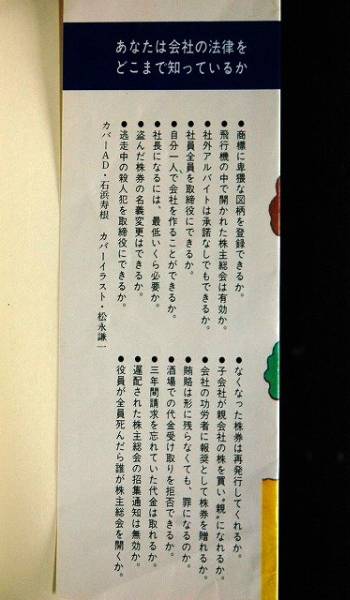 あなたは会社の法律を
どこまで知っているか
●商標に卑猥な図柄を登録できるか。
●飛行機の中で開かれた株主総会は有効か。
●社外アルバイトは承諾なしでもできるか。
●社員全員を取締役にできるか。
●自分一人で会社を作ることができるか。
●社長になるには、最低いくら必要か。
●盗んだ株券の名義変更はできるか。
●逃走中の殺人犯を取締役にできるか。
●なくなった株券は再発行してくれるか。
●子会社が親会社の株を買い“親”になれるか。
●会社の功労者に報奨として株券を贈れるか。
●賄賂は形に残らなくても、罪になるのか。
●酒場での代金受け取りを拒否できるか。
●三年間請求を忘れていた代金は取れるか。
●遅配された株主総会の招集通知は無効か。
●役員が全員死んだら誰が株主総会を開くか。
カバーAD・石浜寿根 カバーイラスト・松永謙一